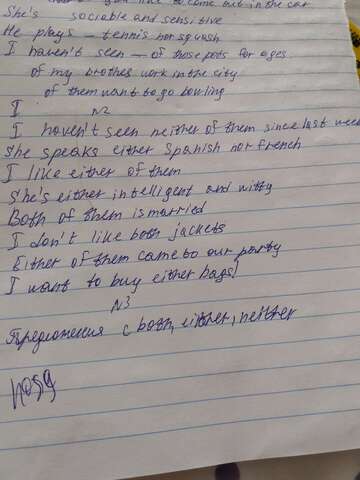 like to come out in the car
She's sociable and sensitive
He plays – tennis nor squash
I haven't seen – of those pets for ages
of my brothes work in the city
of them want to go bowling
I
N2
I haven't seen neither of them since last week
She speaks either Spanish nor french
I like either of them
She's either intelligent and witty
Both of them is married
I don't like both jackets
Either of them came to our party
I want to buy either bags!
N3
Предложения с both, either, neither